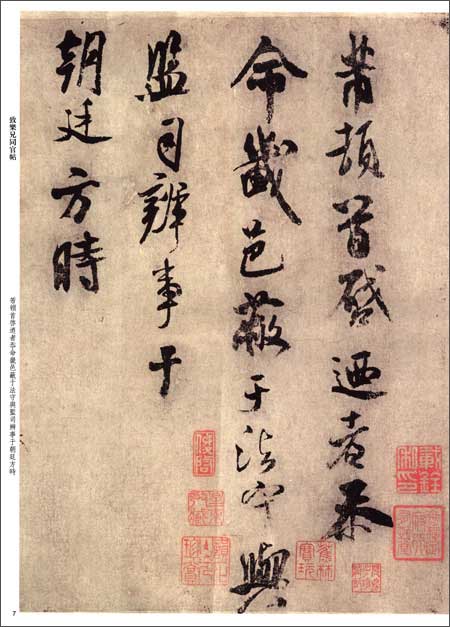 芾頓首啓迺者忝
命畿邑蔽于法守與
監司辨事于
朝廷方時
致樂兄同官帖
芾頓首啓迺者忝命畿邑蔽于法守與監司辨事于朝廷方時
7